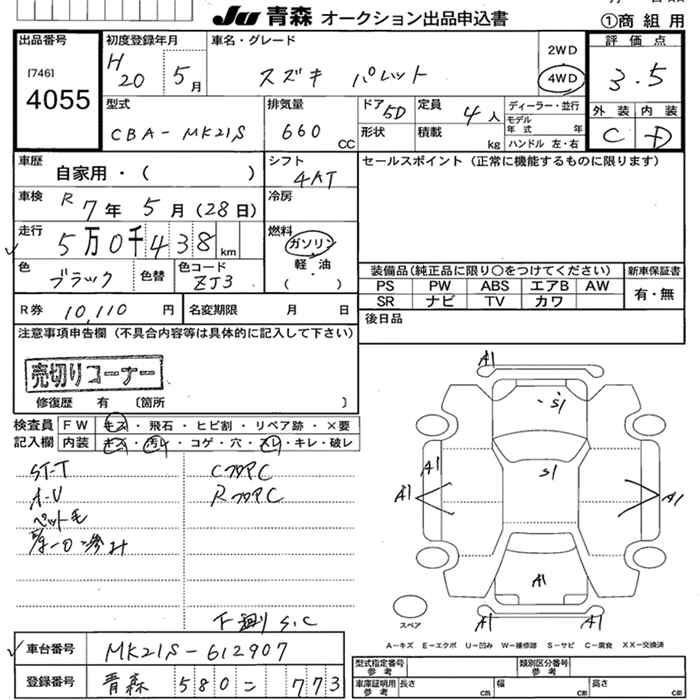 Ju 青森 オークション出品申込書
①商 組 用
出品番号
[746]
4055
初度登録年月
H 20 5月
車名・グレード
スズキ パレット
2WD
4WD
評価点
3.5
外装 内装
C D
型式
CBA-MK21S
排気量
660 CC
ドア 5D
形状
定員 4人
積載 kg
ディーラー・並行
モデル年式 年
ハンドル 左・右
車歴
自家用・( )
シフト
4AT
セールスポイント(正常に機能するものに限ります)
車検 R 7年 5月(28日)
冷房
走行
5万0千438km
燃料
ガソリン
軽・油
( )
色
ブラック
色替
色コード
ZJ3
装備品(純正品に限り〇をつけてください)
新車保証書
PS PW ABS エアB AW
SR ナビ TV カワ
有・無
R券 10,110円
名変期限 月 日
後日品
注意事項申告欄(不具合内容等は具体的に記入して下さい)
売切りコーナー
修復歴 有 〔箇所 〕
検査員記入欄
FW キズ・飛石・ヒビ割・リペア跡・×要
内装 キズ・汚レ・コゲ・穴・スレ・キレ・破レ
ST-T
A-V
ペット毛
C フロアC
R フロアC
下廻り S.C
A1
S1
A1
S1
A1
A1
A1
A1
A1
スペア
A−キズ E−エクボ U−凹み W−補修跡 S−サビ C−腐食 XX−交換済
車台番号 MK21S-612907
登録番号 青森 580 ニ 773
型式指定番号
類別区分番号
車庫証明用参考 長さ cm 幅 cm 高さ cm